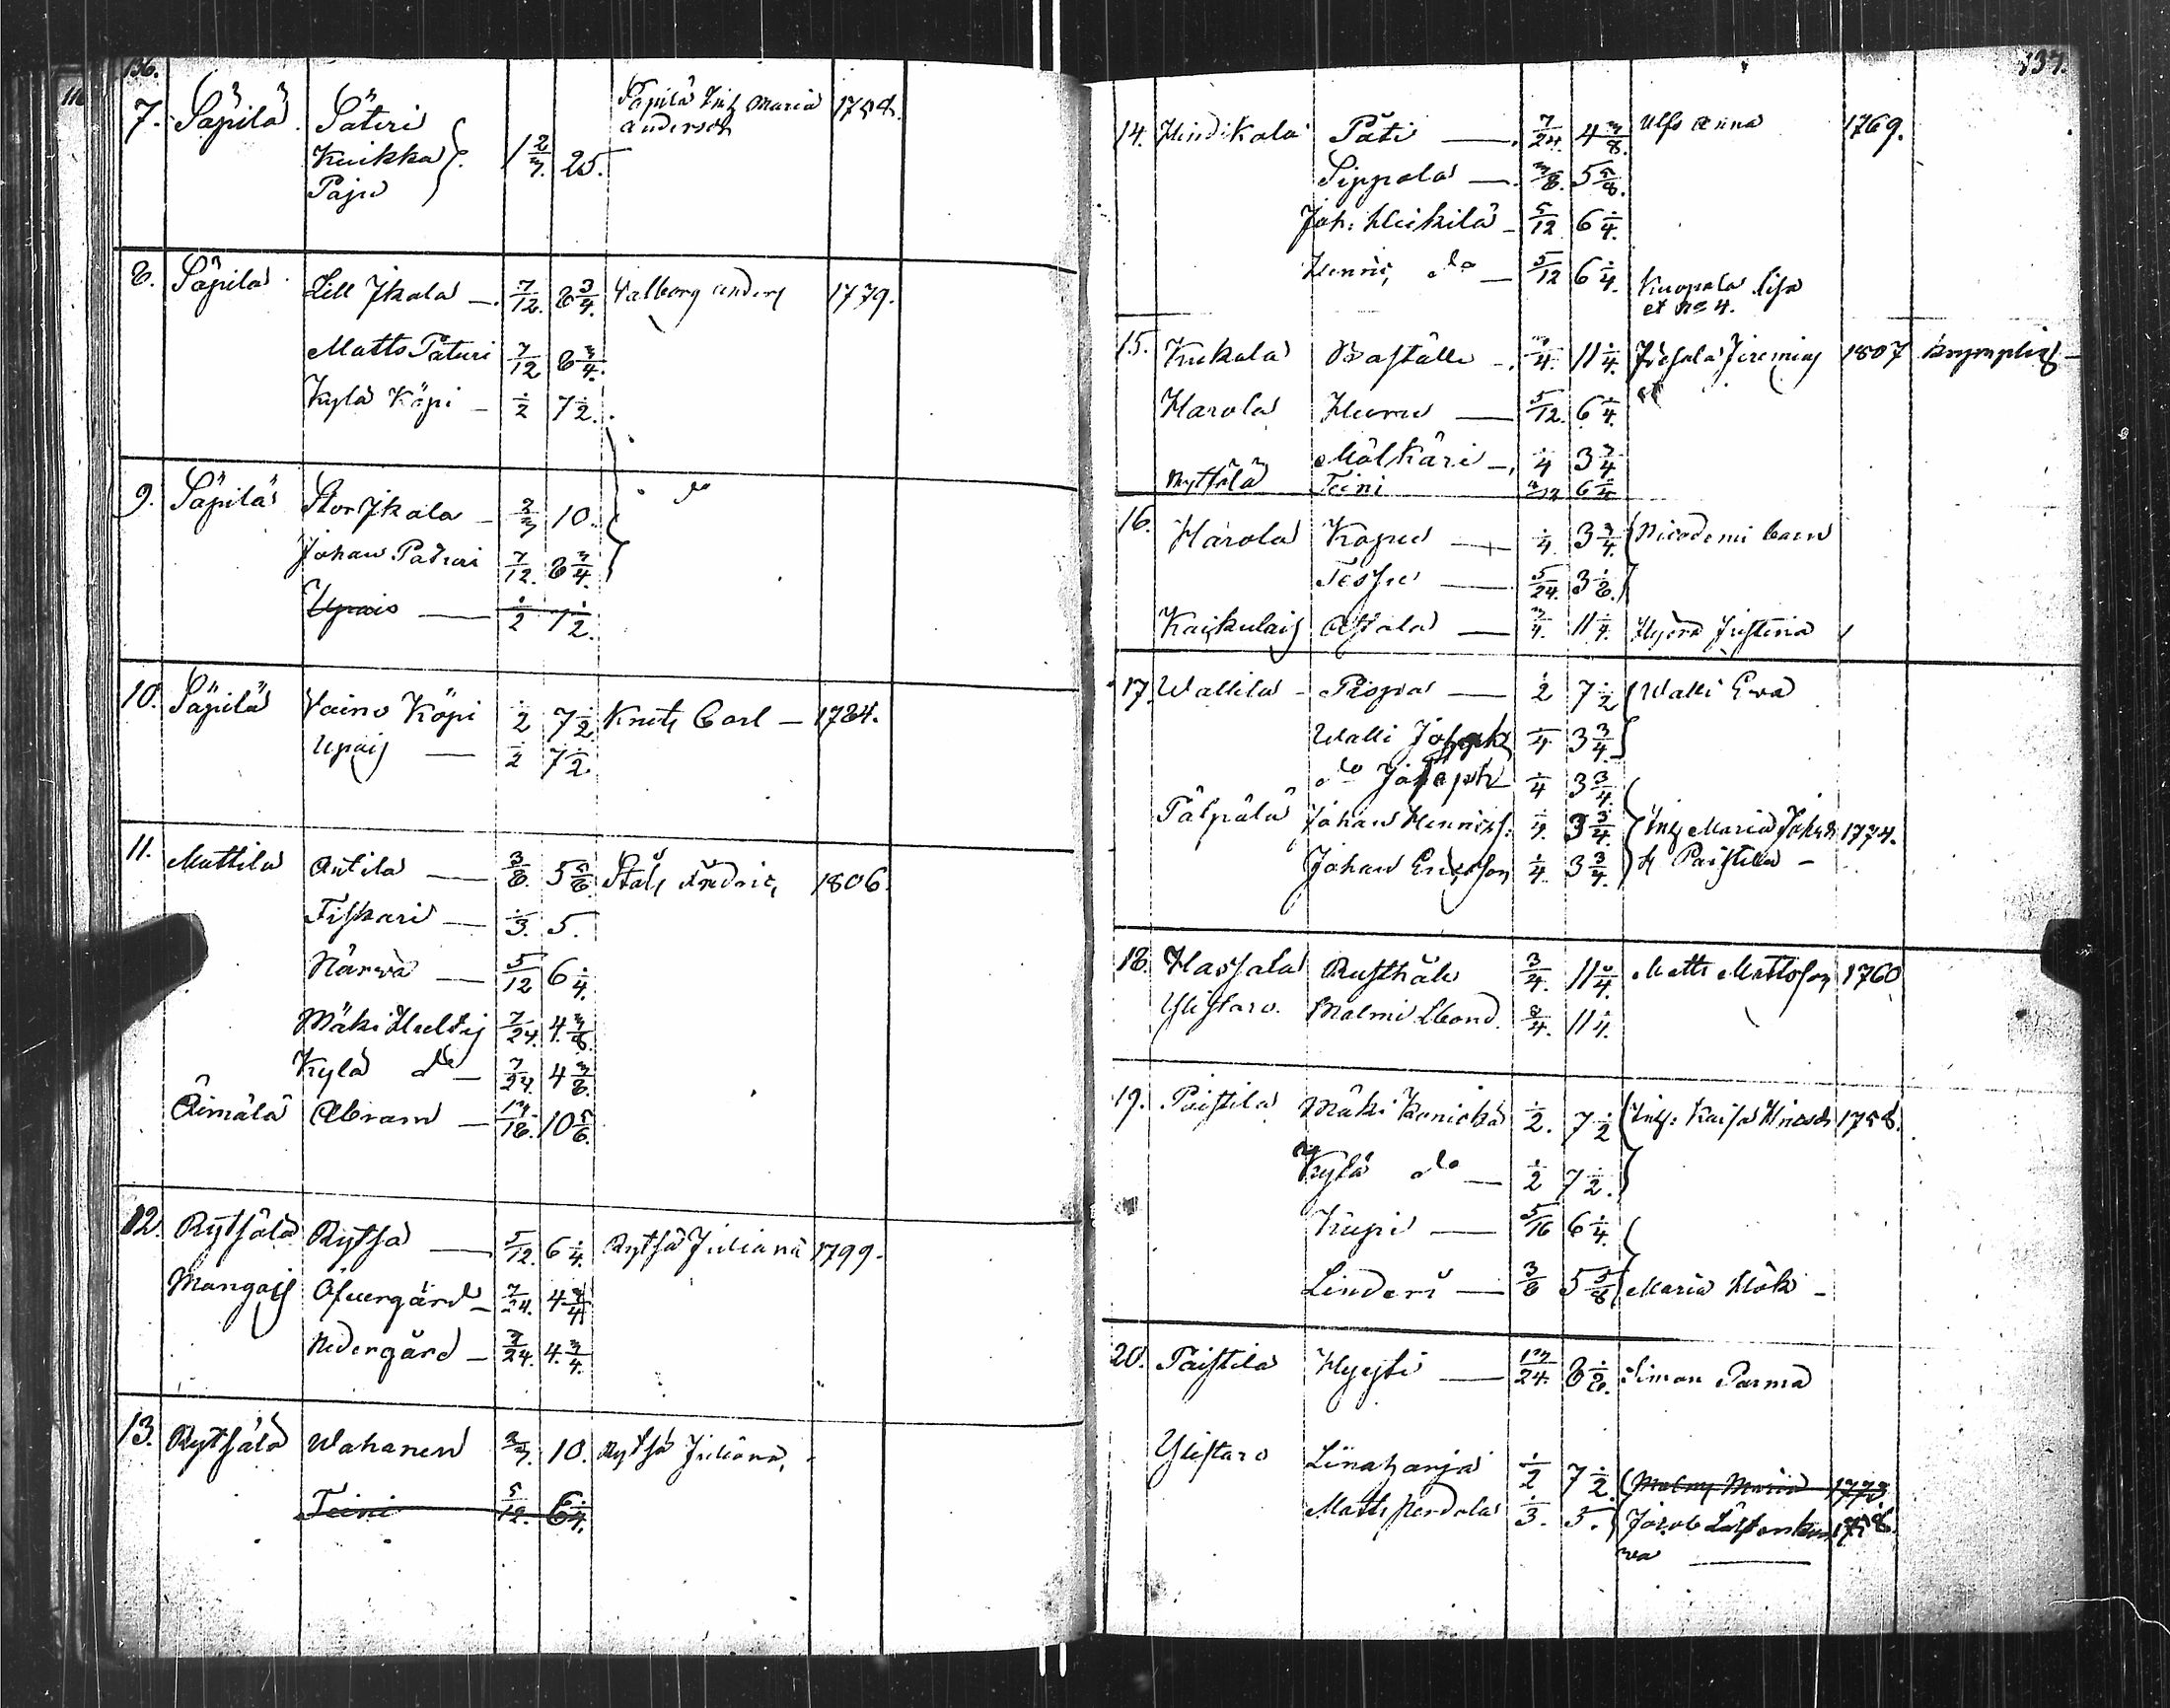 136.
7. Säpilä Säteri Säpilä Enk Maria 1758.
Kuikka 1 2/3. 25. Andersdr
Paju
8. Säpilä Lill Jkala — 7/12. 8 3/4. Valborg Anders 1779.
Matts Päturi 7/12 8 3/4.
Kylä Köpi — 1/2 7 1/2.
9. Säpilä Stor Jkala — 2/3 10. do
Johan Päturi 7/12. 8 3/4.
Upais — 1/2 7 1/2.
10. Säpilä Vaino Köpi 1/2 7 1/2 Knuts Carl — 1784.
Upais — 1/2 7 1/2.
11. Mattila Antila — 3/8. 5 5/8 Ståls Fredric, 1806.
Fiskari — 1/3. 5.
Närvä — 5/12 6 1/4.
Mäki Huldis 7/24. 4 3/8.
Kylä do — 7/24. 4 3/8.
Äimälä Abram — 13/18. 10 5/6.
12. Rytsälä Rytsä — 5/12 6 1/4 Rytsä Juliana 1799.
Mangois Öfvergård — 7/24. 4 3/4
Nedergård — 7/24. 4 3/4.
13. Rytsälä Wahanen 2/3 10. Rytsä Juliana,
Teini 5/12. 6 1/4.
137.
14. Hindikala Päti — 7/24. 4 3/8. Ulfs Anna 1769.
Sippala — 3/8. 5 5/8.
Joh: Heikilä — 5/12 6 1/4.
Henric, do — 5/12 6 1/4. Kuopala Lisa
et No 4.
15. Kukola Baställe — 3/4. 11 1/4. Jeremias 1807
Harola Huru — 5/12. 6 1/4.
Mälkäri — 1/4 3 3/4
Ryttälä Teini 5/12 6 1/4
16. Harola Kapu — 1/4. 3 3/4. Nicodemi Caisa
— 5/24. 3 1/8.
Kaiskulais Astala — 3/4. 11 1/4. Justina
17. Wallila — Piopa — 1/2 7 1/2 Walli Eva
Walli Joseph 1/4 3 3/4
do Joseph 1/4 3 3/4.
Tälpälä Johan Henrics: 1/4. 3 3/4. Enk Maria Johsdr 1774.
Johan Ericsson 1/4. 3 3/4. fr Paistila —
18. Hassala Rusthåll 3/4. 11 1/4. Matts Mattsson 1760
Ylistaro. Malmi Lbond. 3/4. 11 1/4.
19. Paistila Mäki Konicka 1/2. 7 1/2 Enk: Kaisa Hinsdr 1758.
Kylä do — 1/2 7 1/2.
Kupi — 5/16 6 1/4.
Linderi — 3/8 5 5/8 Maria Höök —
20. Paistila Hyysti — 13/24. 8 1/8. Simon Parma
Ylistaro Linaharja 1/2 7 1/2. Malmi Maria 1773
Matts Perdola 1/3. 5. Jacob